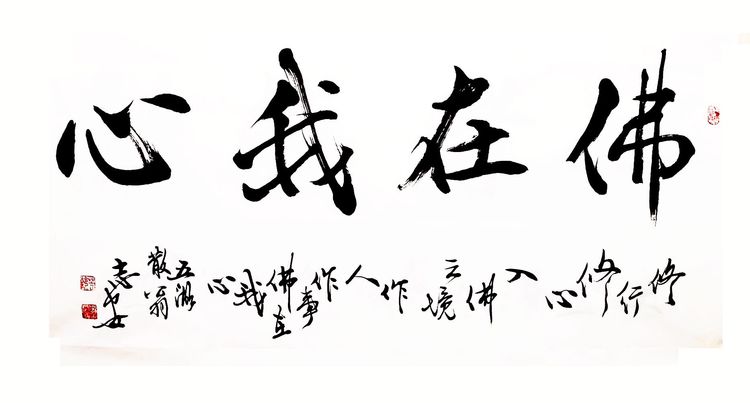 佛在我心
修行修心入佛云境作人作事佛在我心
五湖
散翁
志